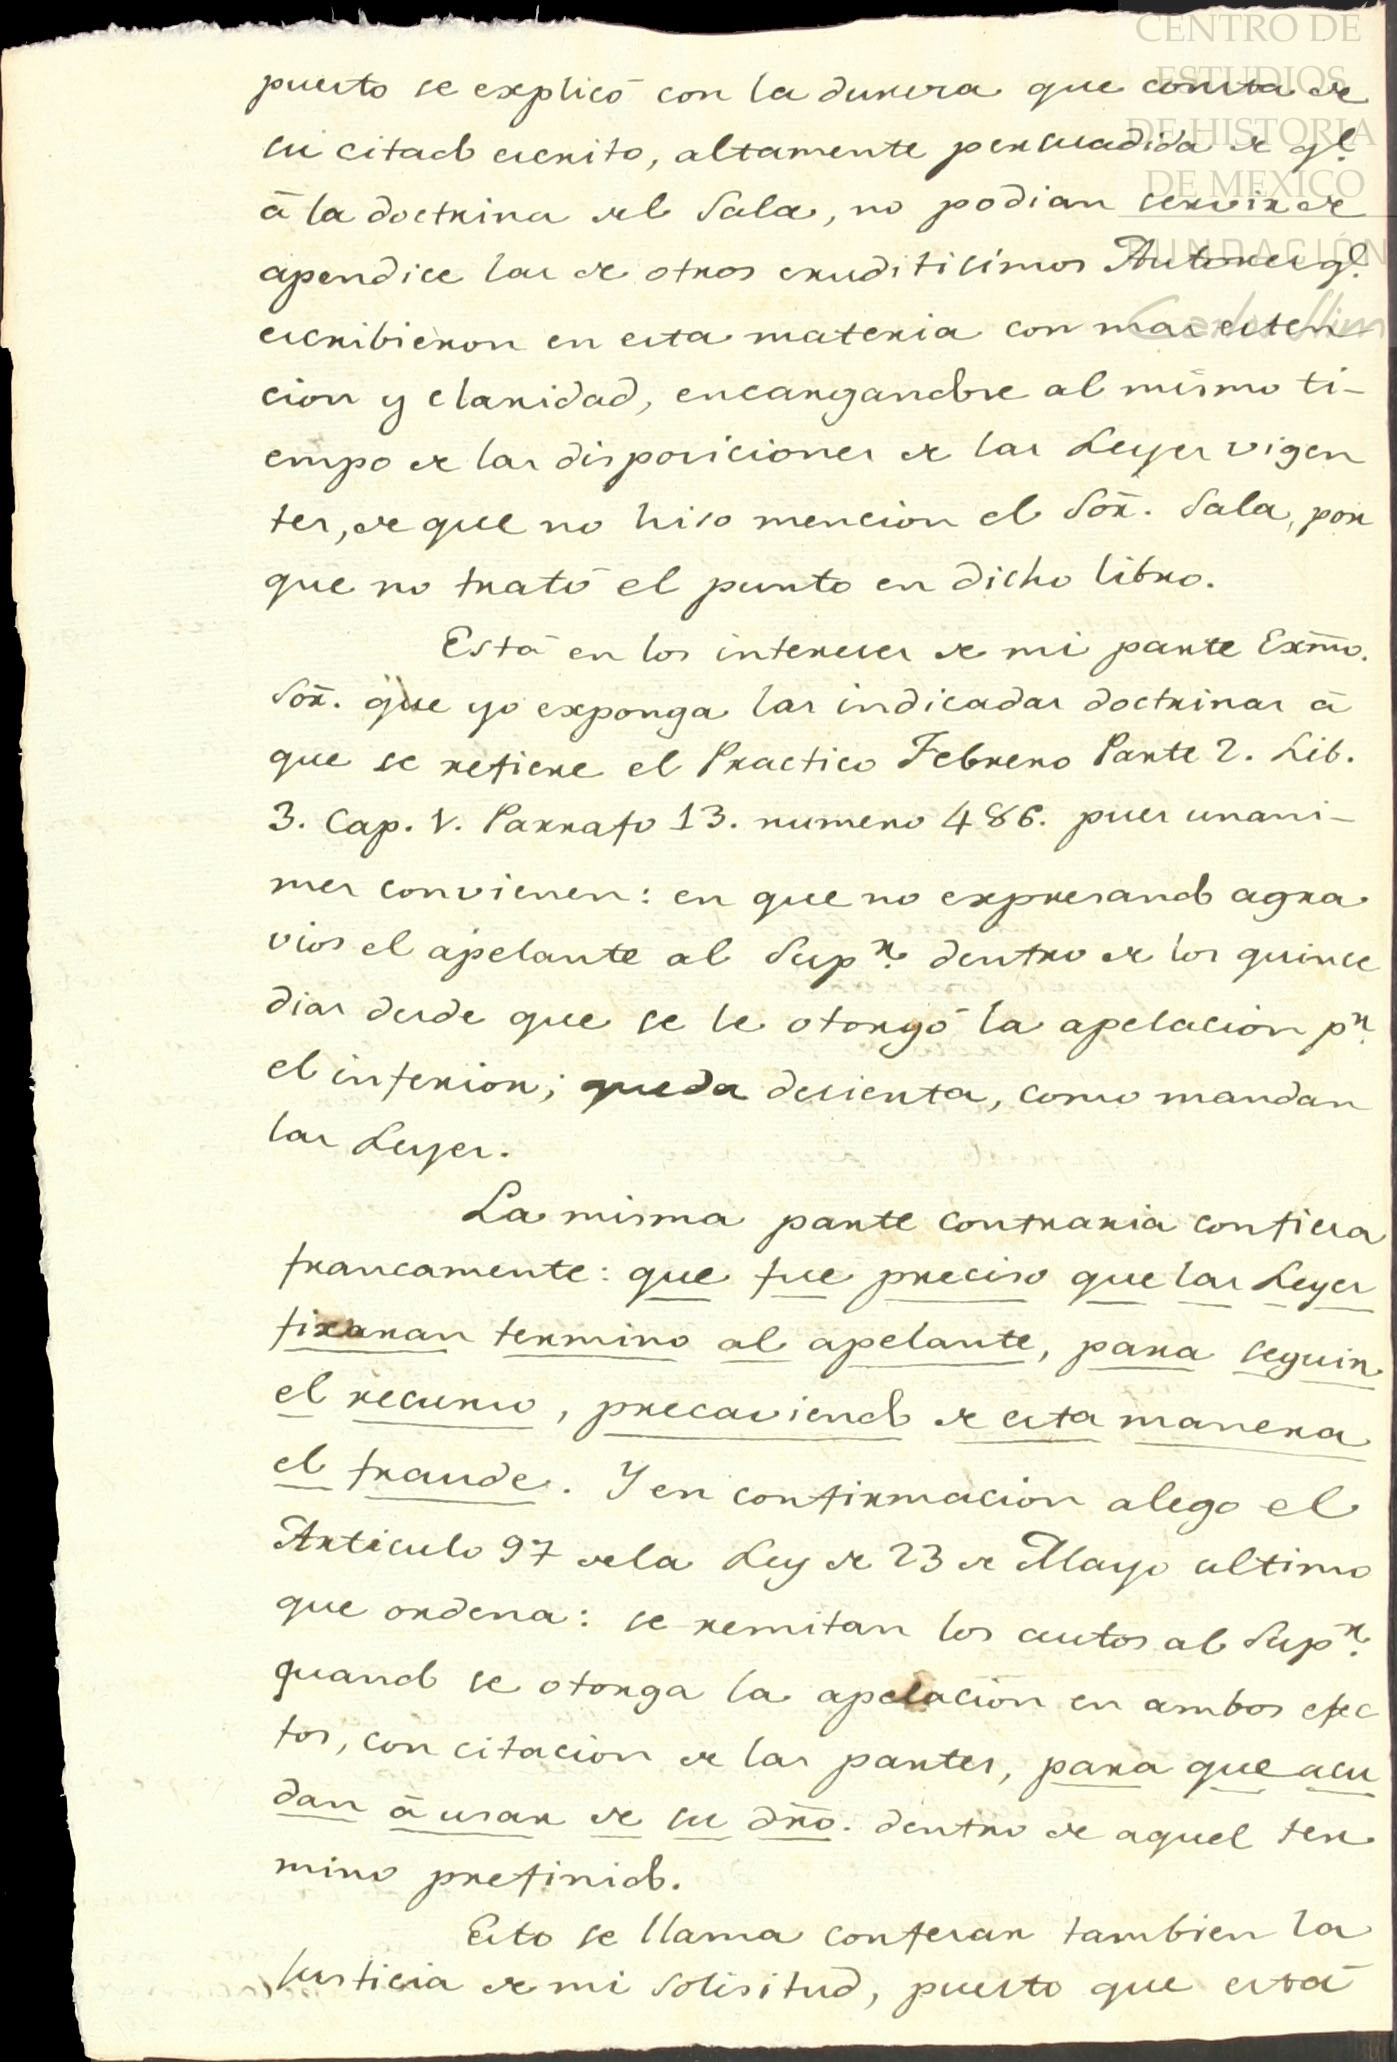 CENTRO DE
ESTUDIOS
DE HISTORIA
DE MEXICO
FUNDACIÓN
Carlos Slim
puesto se explicó con la dureza que consta de
su citado escrito, altamente persuadida de qe.
á la doctrina del Sala, no podian servir de
apendice las de otros eruditisimos Autores qe.
escribieron en esta materia con mas esten
cion y claridad, encargandose al mismo ti-
empo de las disposiciones de las Leyes vigen
tes, de que no hiso mencion el Sōr. Sala, por
que no trató el punto en dicho libro.
Está en los intereses de mi parte Exmō.
Sōr. que yo exponga las indicadas doctrinas á
que se refiere el Practico Febrero Parte 2. Lib.
3. Cap. V. Parrafo 13. numero 486. pues unani-
mes convienen: en que no expresando agra
vios el apelante al Supr. dentro de los quince
dias desde que se le otorgó la apelacion pr.
el inferior; queda desierta, como mandan
las Leyes.
La misma parte contraria confiesa
francamente: que fue preciso que las Leyes
fixaran termino al apelante, para seguir
el recurso, precaviendo de esta manera
el fraude. Y en confirmacion alego el
Articulo 97 dela Ley de 23 de Mayo ultimo
que ordena: se remitan los autos al Supr.
quando se otorga la apelacion en ambos efec
tos, con citacion de las partes, para que acu
dan á usar de su drō. dentro de aquel ter
mino prefinido.
Esto se llama confesar tambien la
justicia de mi solisitud, puesto que está